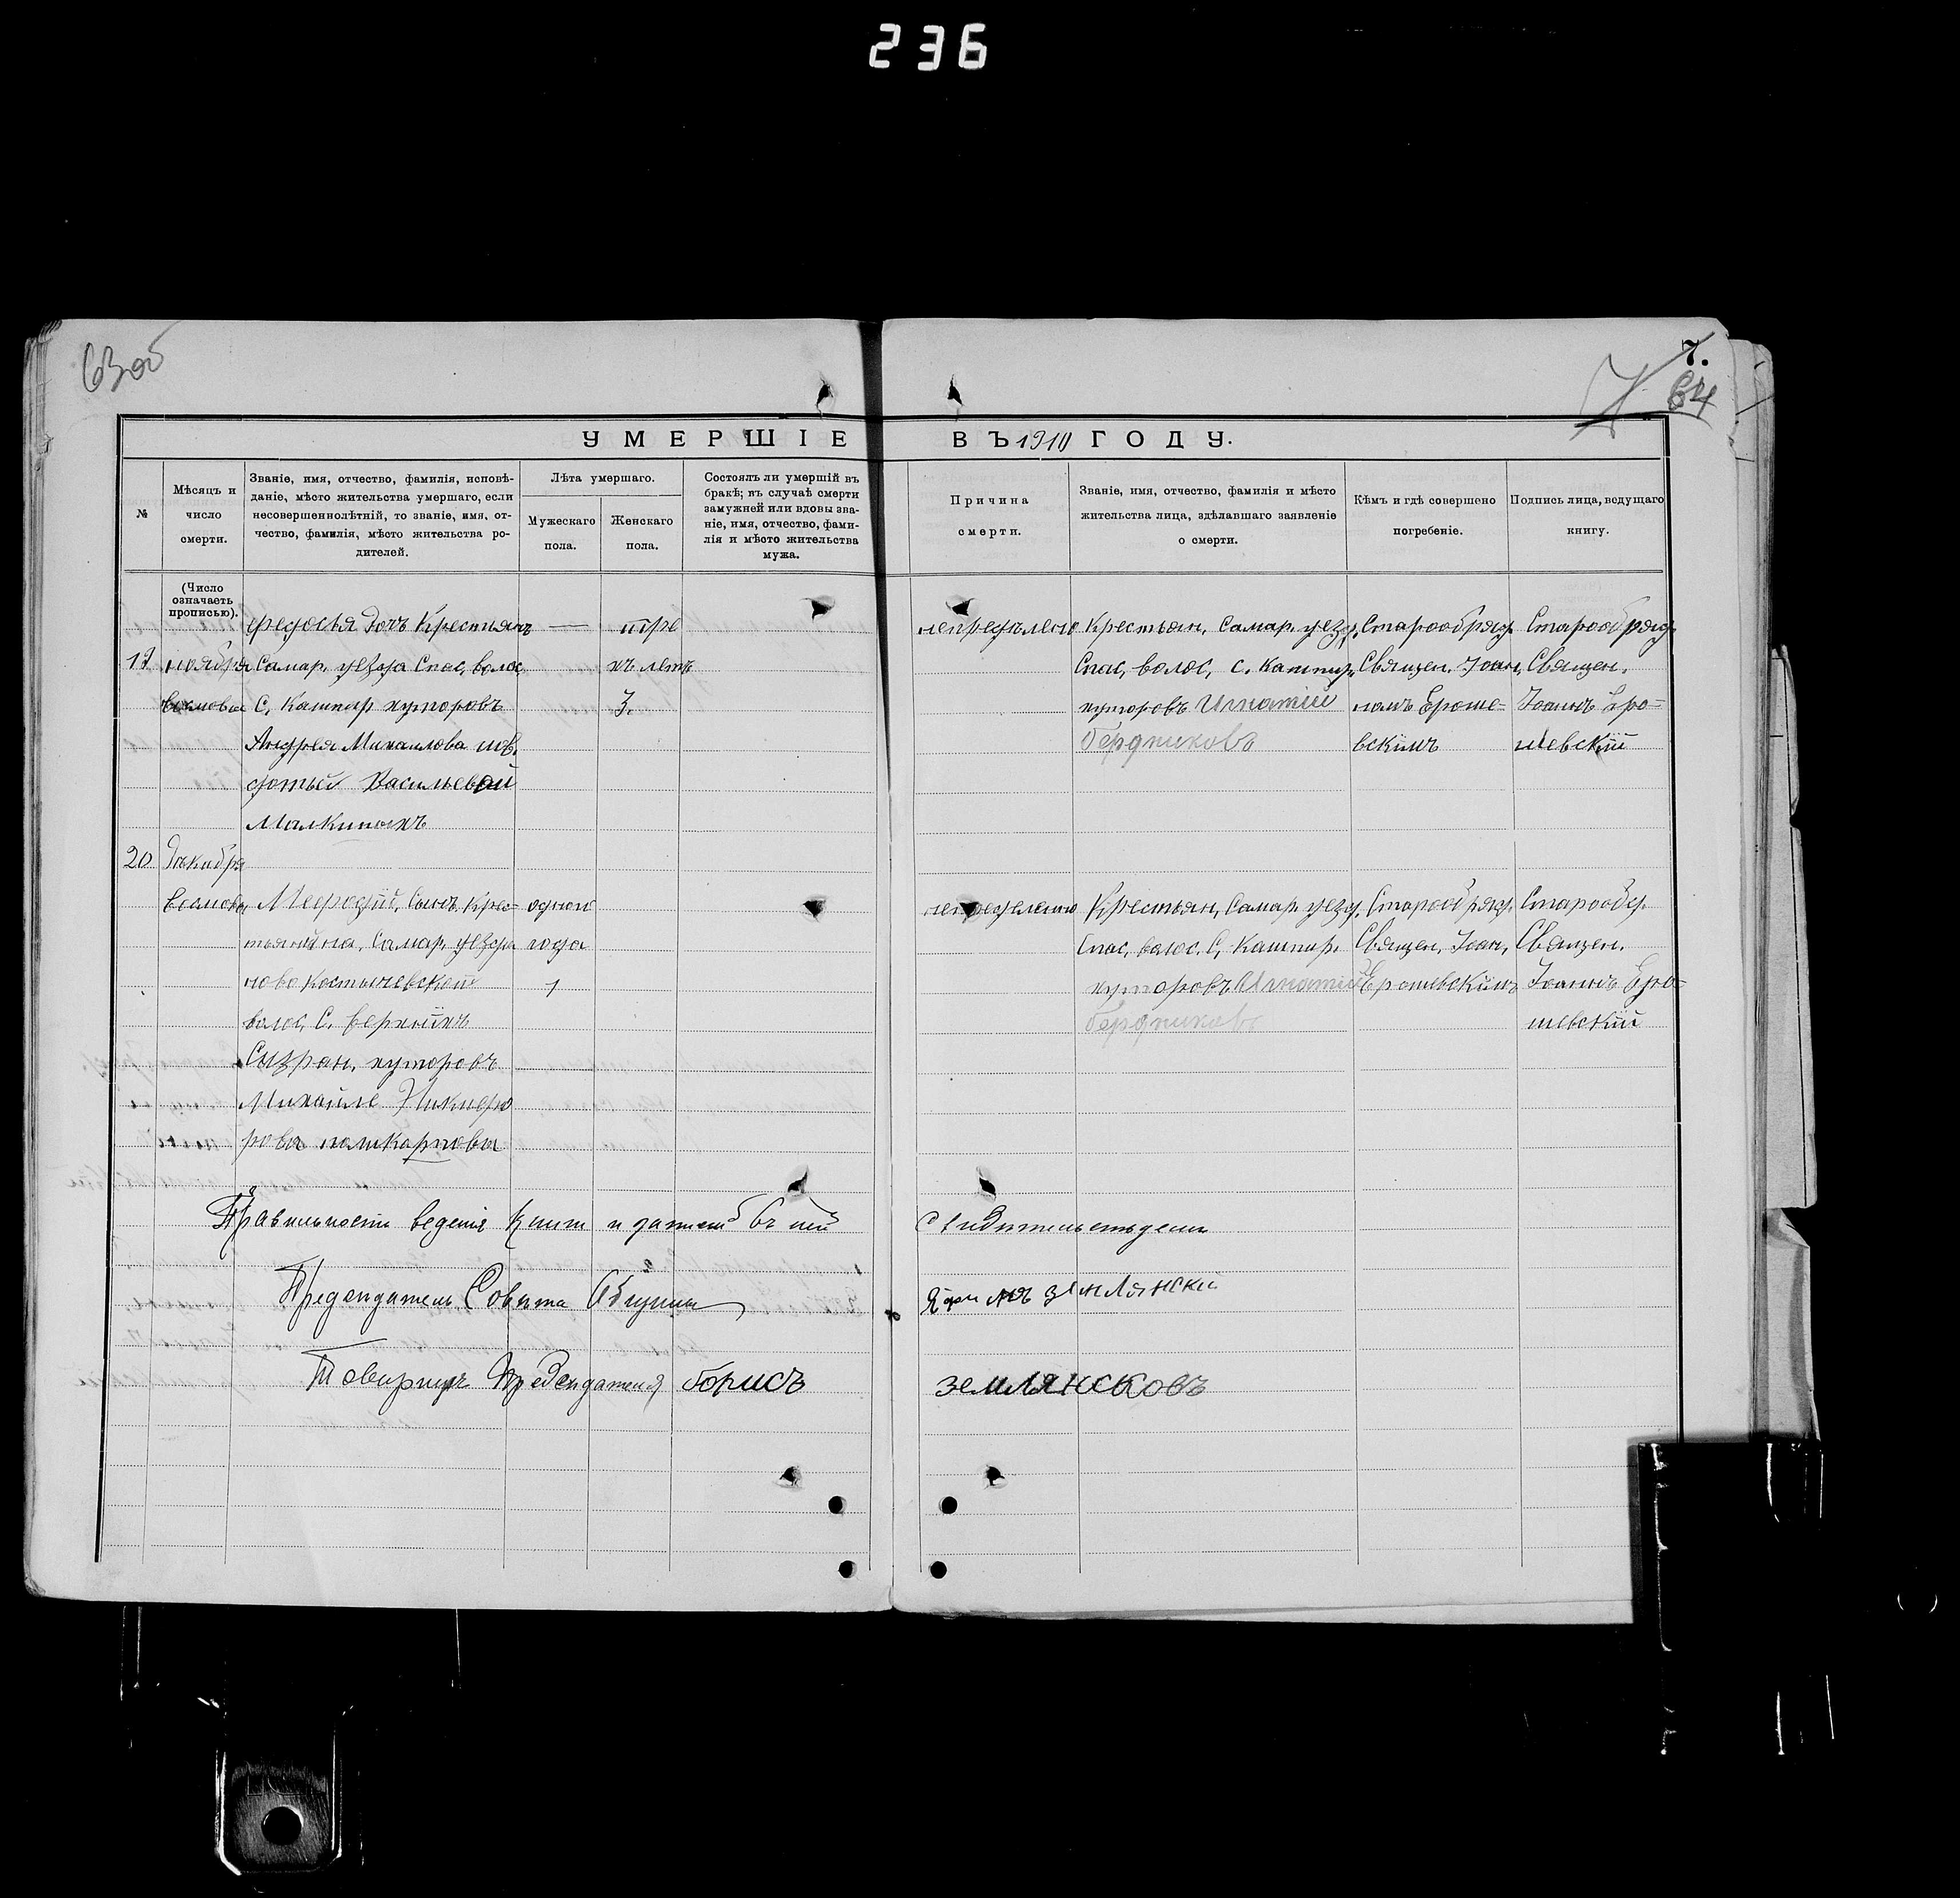 236
63об
7.
7
64
УМЕРШІЕ ВЪ 1910 ГОДУ.
№
Мѣсяцъ и
число
смерти.
Званіе, имя, отчество, фамилія, исповѣ-
даніе, мѣсто жительства умершаго, если
несовершеннолѣтній, то званіе, имя, от-
чество, фамилія, мѣсто жительства ро-
дителей.
Лѣта умершаго.
Мужескаго
пола.
Женскаго
пола.
Состоялъ ли умершій въ
бракѣ; въ случаѣ смерти
замужней или вдовы зва-
ніе, имя, отчество, фами-
лія и мѣсто жительства
мужа.
Причина
смерти.
Званіе, имя, отчество, фамилія и мѣсто
жительства лица, здѣлавшаго заявленіе
о смерти.
Кѣмъ и гдѣ совершено
погребеніе.
Подпись лица, ведущаго
книгу.
(Число
означаеть
прописью).
19
ноября
Федосья Дочъ Крестьянъ
Самар. уезда Спас, волос,
С, Кашпир хуторовъ
Андрея Михаилова и
Васильевой
Малкиныхъ
—
трё
хъ летъ
3.
Крестьян, Самар. уезд,
Спас, волос, с. Кашпир,
хуторовъ Игнатий
бердниковъ
Старообряд.
Священ. Іоан,
номъ Ероше-
вскимъ
Старообряд.
Священ.
Іоаннъ Еро-
шевский
20
Декабря
Мефодий, Сынъ. Крес-
тьянина, Самар. уезда
новокостычевской
волос, С. верхнихъ
Сызран, хуторовъ
Михаиле Никифо
рова поликарпова
одного
года
1
Крестьян, Самар. уезд,
Спас, волос. С, Кашпир.
хуторовъ Игнатий
бердниковъ
Старообряд.
Священ, Іоан,
Ерошевскимъ
Старообр.
Священ.
Іоаннъ Еро-
шевский
Правильность веденія Книги и записей въ ней свидетельствуемъ
Председатель Совѣта Общины
Товарищъ Председателя борисъ землянсковъ